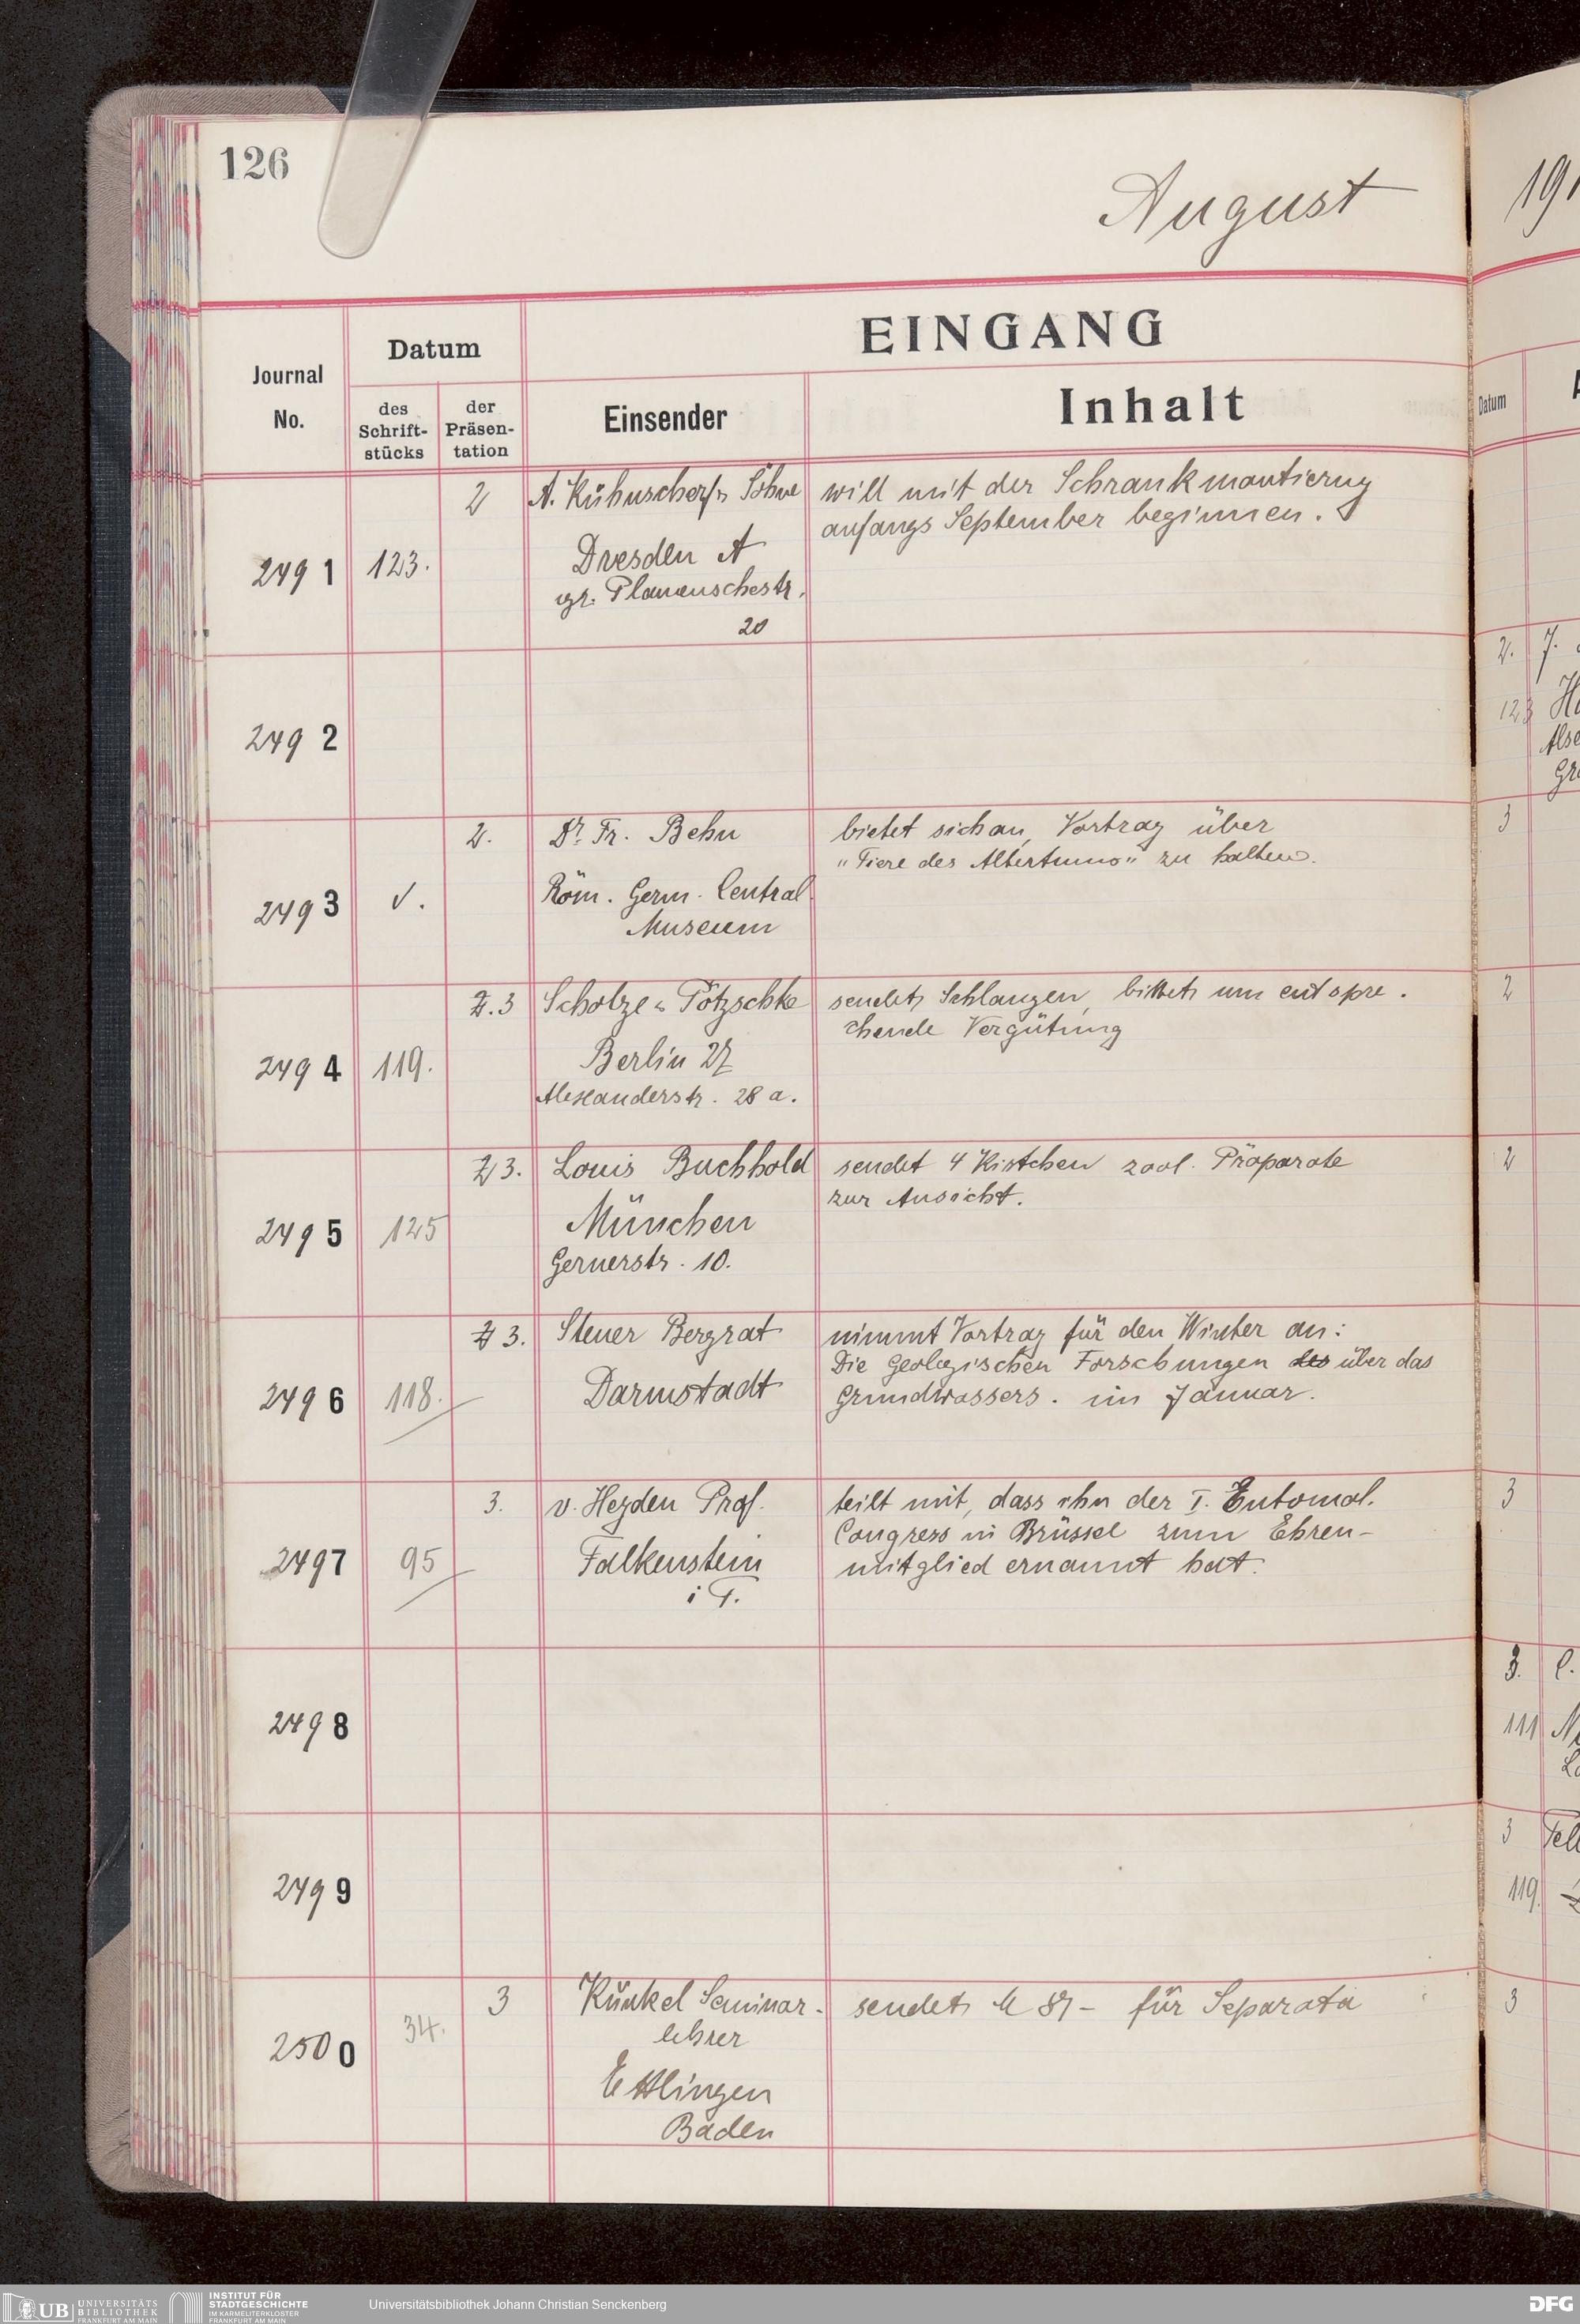 126
August
191
EINGANG
Journal
No.
Datum
des
Schrift-
stücks
der
Präsen-
tation
Einsender
Inhalt
Datum
2491
123.
2
A. Kühnscherf u. Söhne
Dresden A
gr. Plauenschestr.
20
will mit der Schrankmontierung
anfangs September beginnen.
2492
2493
√.
2.
Dr. Fr. Behn
Röm. Germ. Central
Museum
bietet sich an, Vortrag über
"Tiere des Altertums" zu halten.
2494
119.
2.3
Scholze u. Pötzschke
Berlin 27
Alexanderstr. 28 a.
sendet Schlangen, bittet um entspre.
chende Vergütung
2495
125
2 3.
Louis Buchhold
München
Gernerstr. 10.
sendet 4 Kistchen zool. Präparate
zur Ansicht.
2496
118.
2 3.
Steuer Bergrat
Darmstadt
nimmt Vortrag für den Winter an:
Die Geologischen Forschungen des über das
Grundwassers. im Januar.
2497
95
3.
v. Heyden Prof.
Falkenstein
i T.
teilt mit, dass ihn der I. Entomol.
Congress in Brüssel zum Ehren-
mitglied ernannt hat.
2498
2499
2500
34.
3
Künkel Seminar-
lehrer
Ettlingen
Baden
sendet M 87- für Separata
2.
123
3
2
2
3
3.
111
3
119.
3
UB UNIVERSITÄTS
BIBLIOTHEK
FRANKFURT AM MAIN
INSTITUT FÜR
STADTGESCHICHTE
IM KARMELITERKLOSTER
FRANKFURT AM MAIN
Universitätsbibliothek Johann Christian Senckenberg
DFG